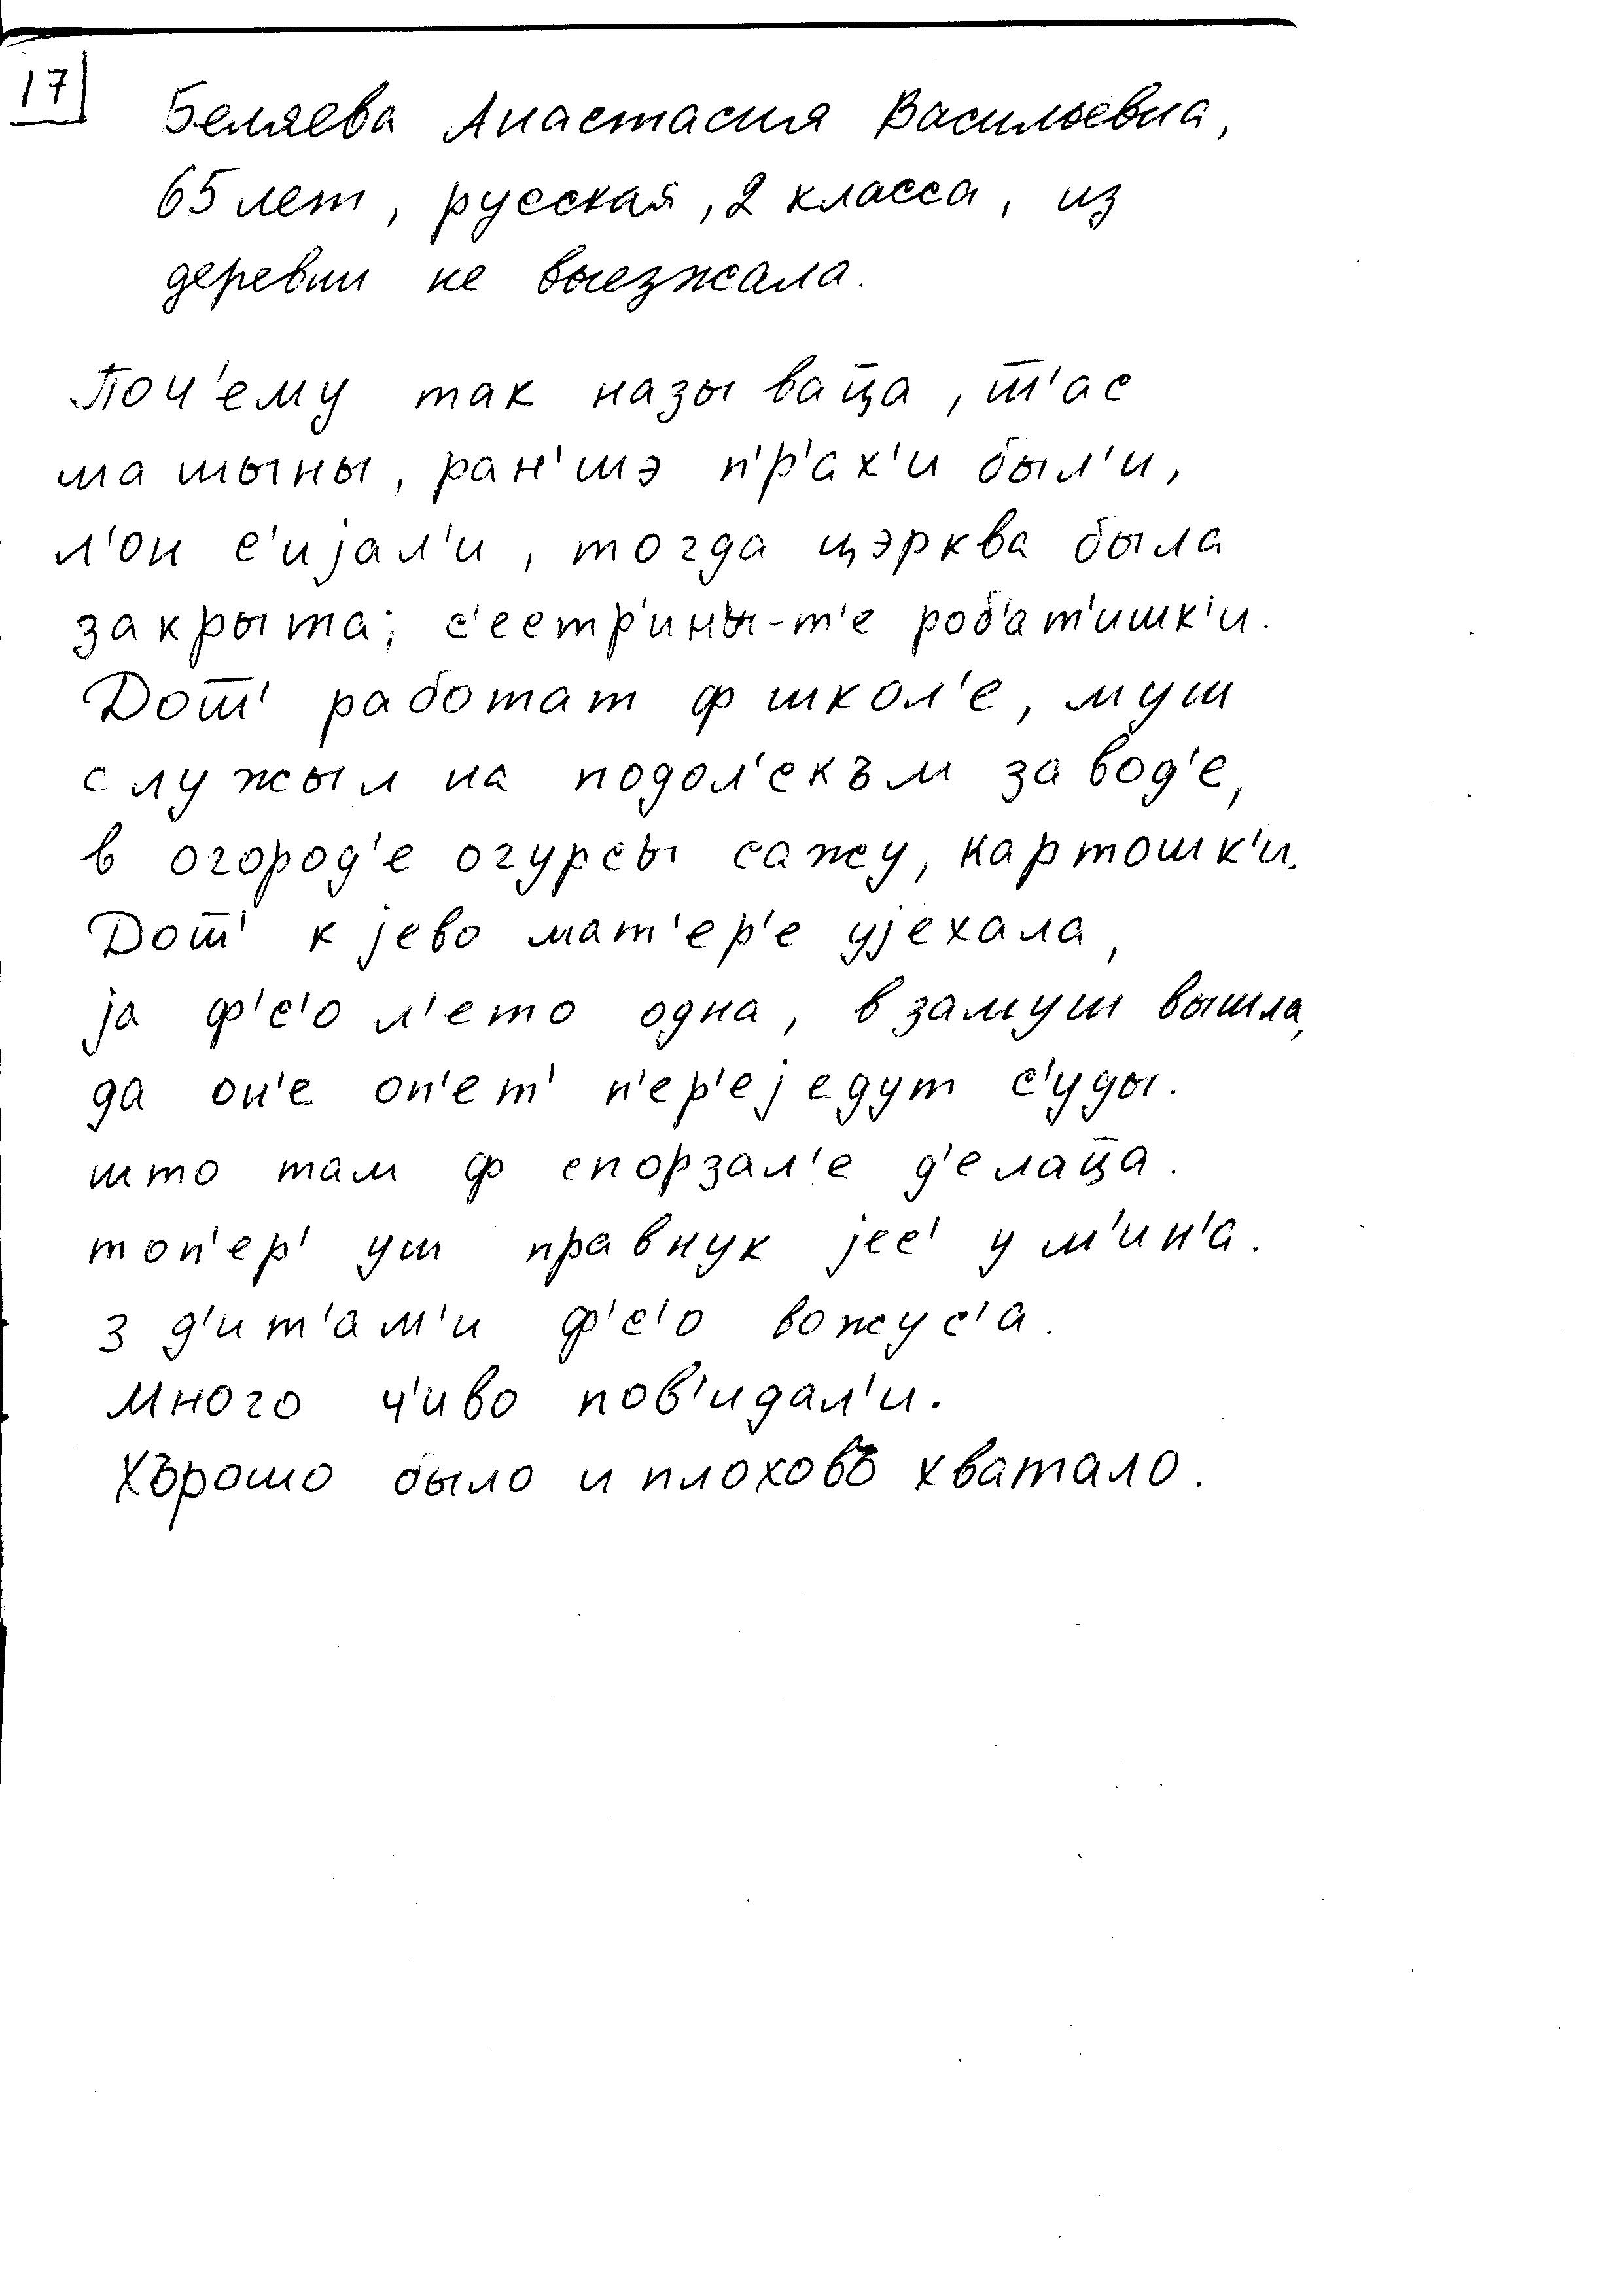 17
Беляева Анастасия Васильевна,
65 лет, русская, 2 класса, из
деревни не выезжала.
Поч'ему так называц̅а, т̅ш'ас
машыны, ран'шэ п'р'ах'и был'и,
л'он с'иjал'и, тогда цэрква была
закрыта; с'естр'ины-т'е роб'ат'ишк'и.
Дот̅ш' работат ф школ'е, муш
служыл на подол'скъм завод'е,
в огород'е огурсы сажу, картошк'и.
Дот̅ш' к jево мат'ер'е уjехала,
jа ф'с'о л'ето одна, в замуш вышла,
да он'е оп'ет' п'ер'еjедут с'уды.
што там ф спорзал'е д'елац̅а.
топ'ер' уш правнук jес' у м'ин'а.
з д'ит'ам'и ф'с'о вожус'а.
Много ч'иво пов'идал'и.
Хърошо было и плоховъ хватало.